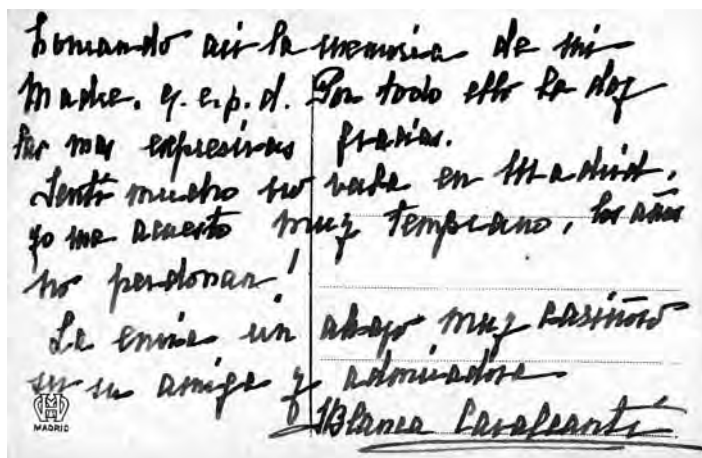 honrando asi la memoria de mi
Madre. q.e.p.d. Por todo ello la doy
las mas expresivas gracias.
Sentí mucho no verla en Madrid,
yo me acuesto muy temprano, los años
no perdonan!
La envia un abrazo muy cariñoso
su amiga y admiradora
Blanca Cavalcanti
MADRID